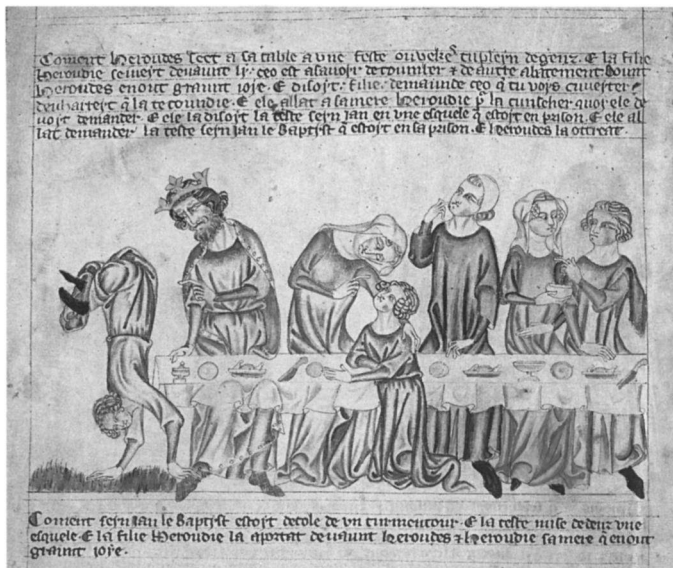 Coment Heroudes seet a sa table a une feste ou vekes tuplein de genz. E la filie
Heroudie seweyt devaunt ly. ceo est asavoir de toumler & de autre abatement dount
Heroudes en out graunt ioye. E disoyt. filie. demaunde ceo q tu voys
q la te coundie. E ele allat a sa mere Heroudie la quoy ele de
voyt demander. E ele la disoyt la teste seyn Jan en une esquele q estoyt en prison. E ele al
lat demander la teste seyn Jan le Baptyst q estoyt en sa prison. E Heroudes la ottreat.
Coment seyn Jan le Baptyst estoyt decole de un turmentour. E la teste mise dedenz une
esquele. E la filie Heroudie la aportat devaunt Heroudes & Heroudie sa mere q en out
graunt ioye.